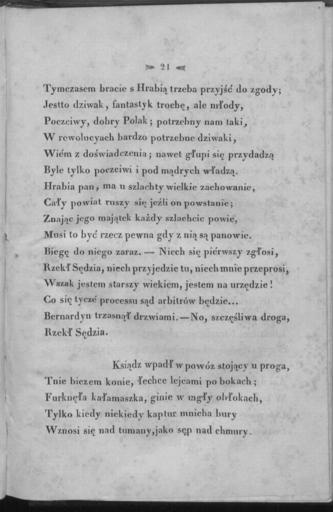 21
Tymczasem bracie s Hrabią trzeba przyjść do zgody;
Jestto dziwak, fantastyk trochę, ale młody,
Poczciwy, dobry Polak; potrzebny nam taki,
W rewolucyach bardzo potrzebne dziwaki,
Wiém z doświadczenia; nawet głupi się przydadzą
Byle tylko poczciwi i pod mądrych władzą.
Hrabia pan, ma u szlachty wielkie zachowanie,
Cały powiat ruszy się jeźli on powstanie;
Znając jego majątek każdy szlachcic powie,
Musi to być rzecz pewna gdy z nią są panowie.
Biegę do niego zaraz. — Niech się piérwszy zgłosi,
Rzekł Sędzia, niech przyjedzie tu, niech mnie przeprosi,
Wszak jestem starszy wiekiem, jestem na urzędzie!
Co się tycze processu sąd arbitrów będzie...
Bernardyn trzasnął drzwiami. — No, szczęśliwa droga,
Rzekł Sędzia.
Ksiądz wpadł w powóz stojący u proga,
Tnie biczem konie, łechce lejcami po bokach;
Furknęła kałamaszka, ginie w mgły obłokach,
Tylko kiedy niekiedy kaptur mnicha bury
Wznosi się nad tumany, jako sęp nad chmury.